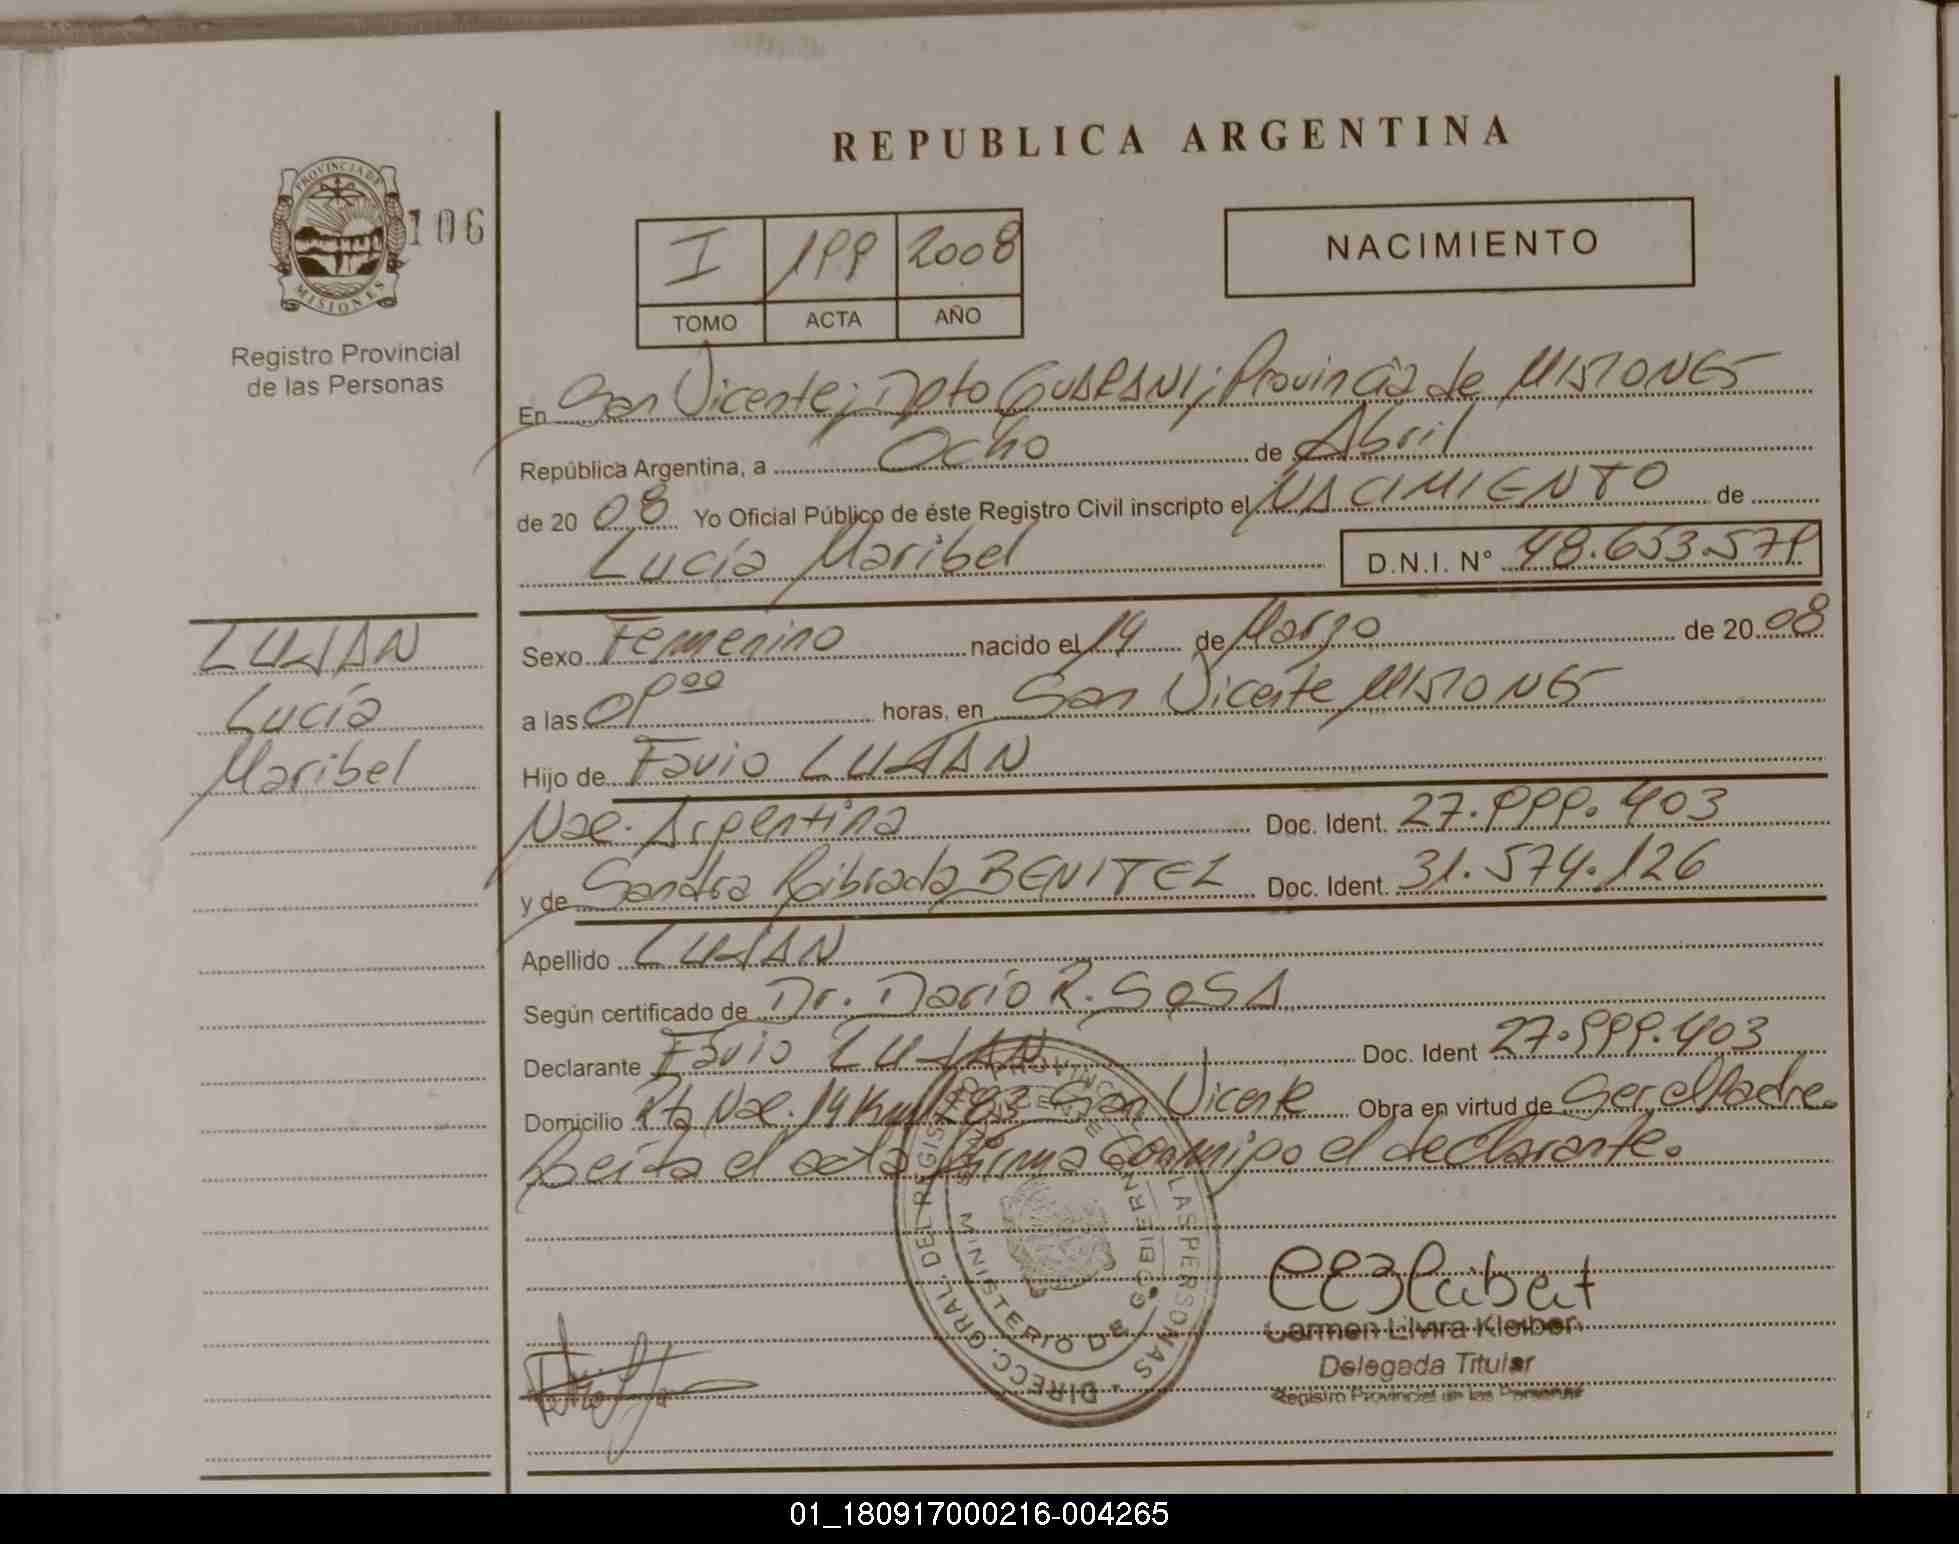 REPUBLICA ARGENTINA
PROVINCIA DE
MISIONES
106
Registro Provincial
de las Personas
I 199 2008
TOMO ACTA AÑO
NACIMIENTO
En San Vicente; Dpto GUARANI; Provincia de MISIONES
República Argentina, a Ocho de Abril
de 2008 Yo Oficial Público de éste Registro Civil inscripto el NACIMIENTO de
Lucía Maribel D.N.I. Nº 48.653.579
LUJAN
Lucía
Maribel
Sexo Femenino nacido el 14 de Marzo de 2008
a las 09⁰⁰ horas, en San Vicente MISIONES
Hijo de Favio LUJAN
Nac. Argentina Doc. Ident. 27.999.403
y de Sandra BENITEZ Doc. Ident. 31.574.126
Apellido LUJAN
Según certificado de Dr. Darío R. SOSA
Declarante Favio LUJAN Doc. Ident 27.999.403
Domicilio Rta Nac. 14 Km San Vicente Obra en virtud de Ser el Padre.
Leída el acta firma conmigo el declarante.
DIRECC. GRAL. DEL REGIS PROVINC LAS PERSONAS
MINISTERIO DE GOBIERN
Carmen Elvira Kleiber
Delegada Titular
Registro Provincial de las Personas
01_180917000216-004265